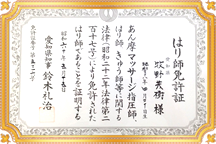 はり師免許証
牧野芳樹 様
あん摩マッサージ指圧師、
はり師、きゅう師等に関する
法律(昭和二十二年法律第二
百十七号)により免許された
はり師であることを証明する
昭和六十年五月十五日
愛知県知事 鈴木礼治